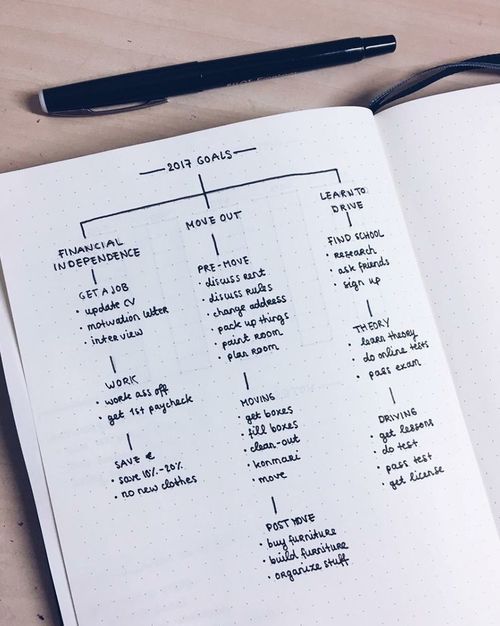 2017 GOALS
FINANCIAL
INDEPENDENCE
GET A JOB
• update CV
• motivation letter
• interview
WORK
• work ass off
• get 1st paycheck
SAVE €
• save 10%-20%
• no new clothes
MOVE OUT
PRE-MOVE
• discuss rent
• discuss rules
• change address
• pack up things
• paint room
• plan room
MOVING
• get boxes
• fill boxes
• clean-out
• konmari
• move
POST MOVE
• buy furniture
• build furniture
• organize stuff
LEARN TO
DRIVE
FIND SCHOOL
• research
• ask friends
• sign up
THEORY
• learn theory
• do online tests
• pass exam
DRIVING
• get lessons
• do test
• pass test
• get license